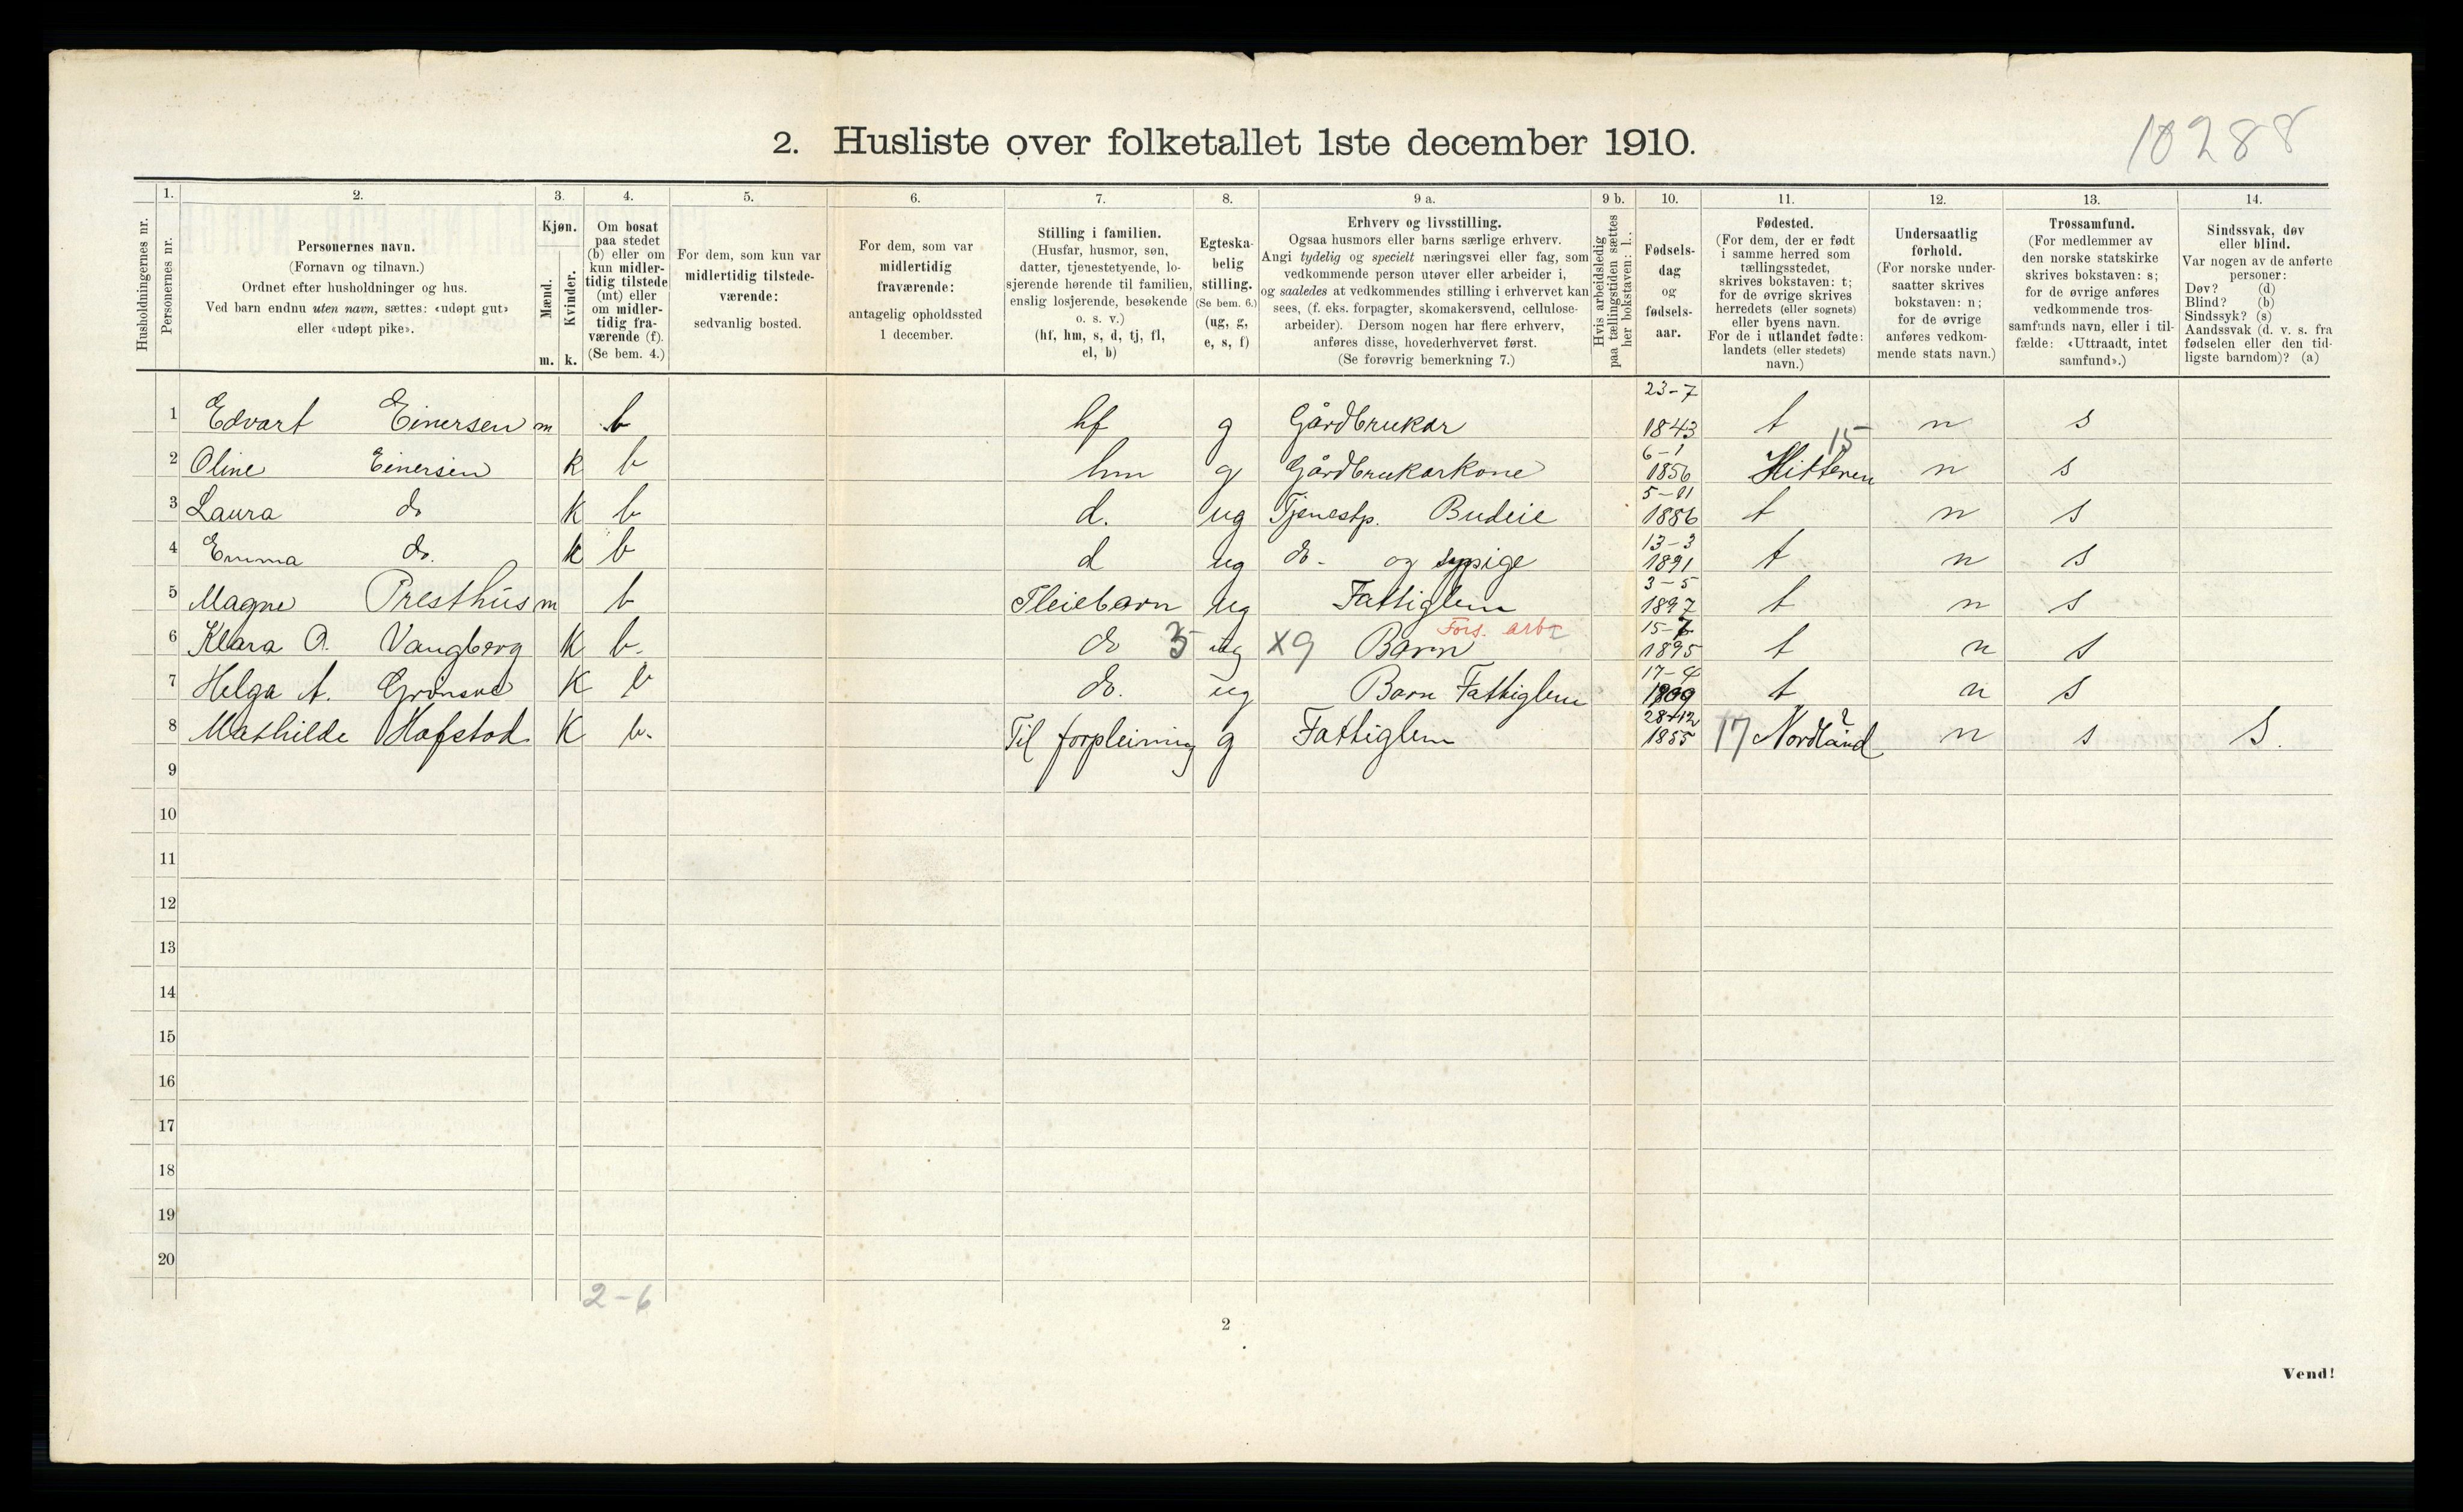 10288
2. Husliste over folketallet 1ste december 1910.
Husholdningernes nr.
1.
Personernes nr.
2.
Personernes navn.
(Fornavn og tilnavn.)
Ordnet efter husholdninger og hus.
Ved barn endnu uten navn, sættes: «udøpt gut»
eller «udøpt pike».
3.
Kjøn.
Mænd.
Kvinder.
m. k.
4.
Om bosat
paa stedet
(b) eller om
kun midler-
tidig tilstede
(mt) eller
om midler-
tidig fra-
værende (f).
(Se bem. 4.)
5.
For dem, som kun var
midlertidig tilstede-
værende:
sedvanlig bosted.
6.
For dem, som var
midlertidig
fraværende:
antagelig opholdssted
1 december.
7.
Stilling i familien.
(Husfar, husmor, søn,
datter, tjenestetyende, lo-
sjerende hørende til familien,
enslig losjerende, besøkende
o. s. v.)
(hf, hm, s, d, tj, fl,
el, b)
8.
Egteska-
belig
stilling.
(Se bem. 6.)
(ug, g,
e, s, f)
9 a.
Erhverv og livsstilling.
Ogsaa husmors eller barns særlige erhverv.
Angi tydelig og specielt næringsvei eller fag, som
vedkommende person utøver eller arbeider i,
og saaledes at vedkommendes stilling i erhvervet kan
sees, (f. eks. forpagter, skomakersvend, cellulose-
arbeider). Dersom nogen har flere erhverv,
anføres disse, hovederhvervet først.
(Se forøvrig bemerkning 7.)
9 b.
Hvis arbeidsledig
paa tællingstiden sættes
her bokstaven: l.
10.
Fødsels-
dag
og
fødsels-
aar.
11.
Fødested.
(For dem, der er født
i samme herred som
tællingsstedet,
skrives bokstaven: t;
for de øvrige skrives
herredets (eller sognets)
eller byens navn.
For de i utlandet fødte:
landets (eller stedets)
navn.)
12.
Undersaatlig
forhold.
(For norske under-
saatter skrives
bokstaven: n;
for de øvrige
anføres vedkom-
mende stats navn.)
13.
Trossamfund.
(For medlemmer av
den norske statskirke
skrives bokstaven: s;
for de øvrige anføres
vedkommende tros-
samfunds navn, eller i til-
fælde: «Uttraadt, intet
samfund».)
14.
Sindssvak, døv
eller blind.
Var nogen av de anførte
personer:
Døv? (d)
Blind? (b)
Sindssyk? (s)
Aandssvak (d. v. s. fra
fødselen eller den tid-
ligste barndom)? (a)
1 Edvart Einersen m b hf g Gårdbrukar 23-7 1843 t n s
2 Oline Einersen k b hm g Gårdbrukarkone 6-1 1856 Hitteren 15 n s
3 Laura do K b d. ug Tjenestp. Budeie 5-11 1886 t n s
4 Emma do. k b d ug do. og sypige 13-3 1891 t n s
5 Magne Presthus m b Pleiebarn ug Fattiglem 3-5 1897 t n s
6 Klara O. Vangberg K b. do 3 ug x9 Barn Fors. arb. 15-7 1895 t n s
7 Helga A. K b do. ug Barn Fattiglem 17-4 t n s
8 Mathilde Hofstad K b. Til forpleining g Fattiglem 28-12 1855 17 Nordland ? n s S.
9
10
11
12
13
14
15
16
17
18
19
20
2-6
2
Vend!